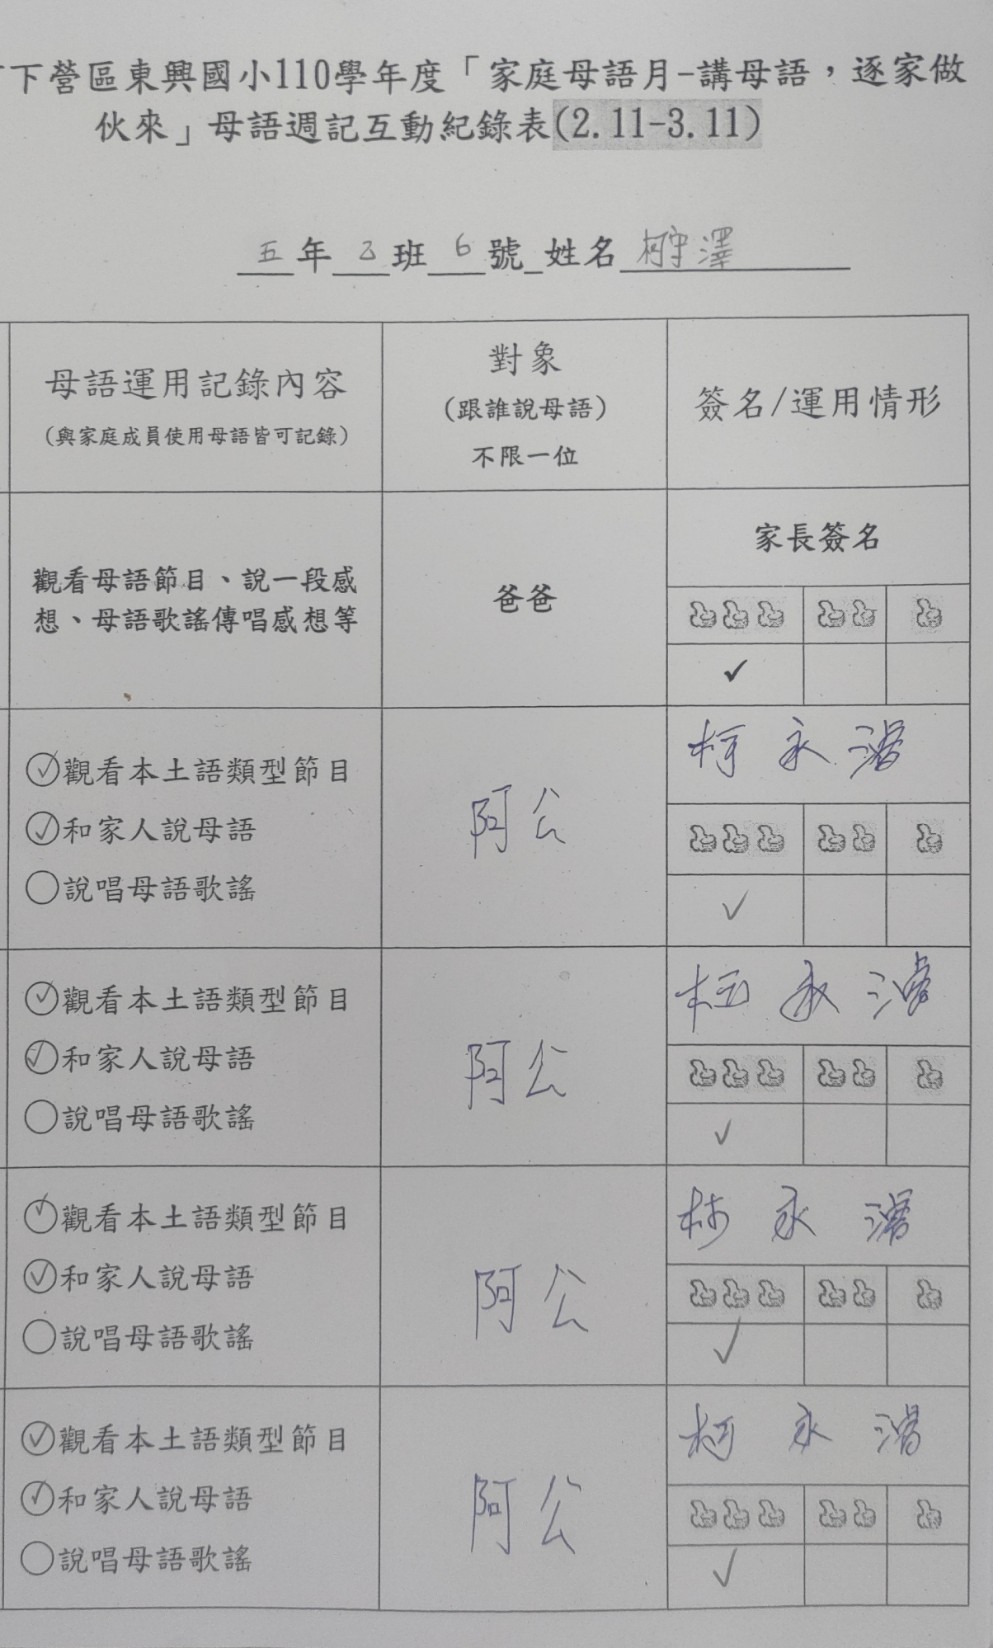 下營區東興國小110學年度「家庭母語月-講母語，逐家做
伙來」母語週記互動紀錄表(2.11-3.11)
五年乙班6號_姓名柯守澤
母語運用記錄內容
(與家庭成員使用母語皆可記錄)
對象
(跟誰說母語)
不限一位
簽名/運用情形
觀看母語節目、說一段感
想、母語歌謠傳唱感想等
爸爸
家長簽名
✓
✓觀看本土語類型節目
✓和家人說母語
○說唱母語歌謠
阿公
柯永濬
✓
✓觀看本土語類型節目
✓和家人說母語
○說唱母語歌謠
阿公
柯永濬
✓
✓觀看本土語類型節目
✓和家人說母語
○說唱母語歌謠
阿公
柯永濬
✓
✓觀看本土語類型節目
✓和家人說母語
○說唱母語歌謠
阿公
柯永濬
✓